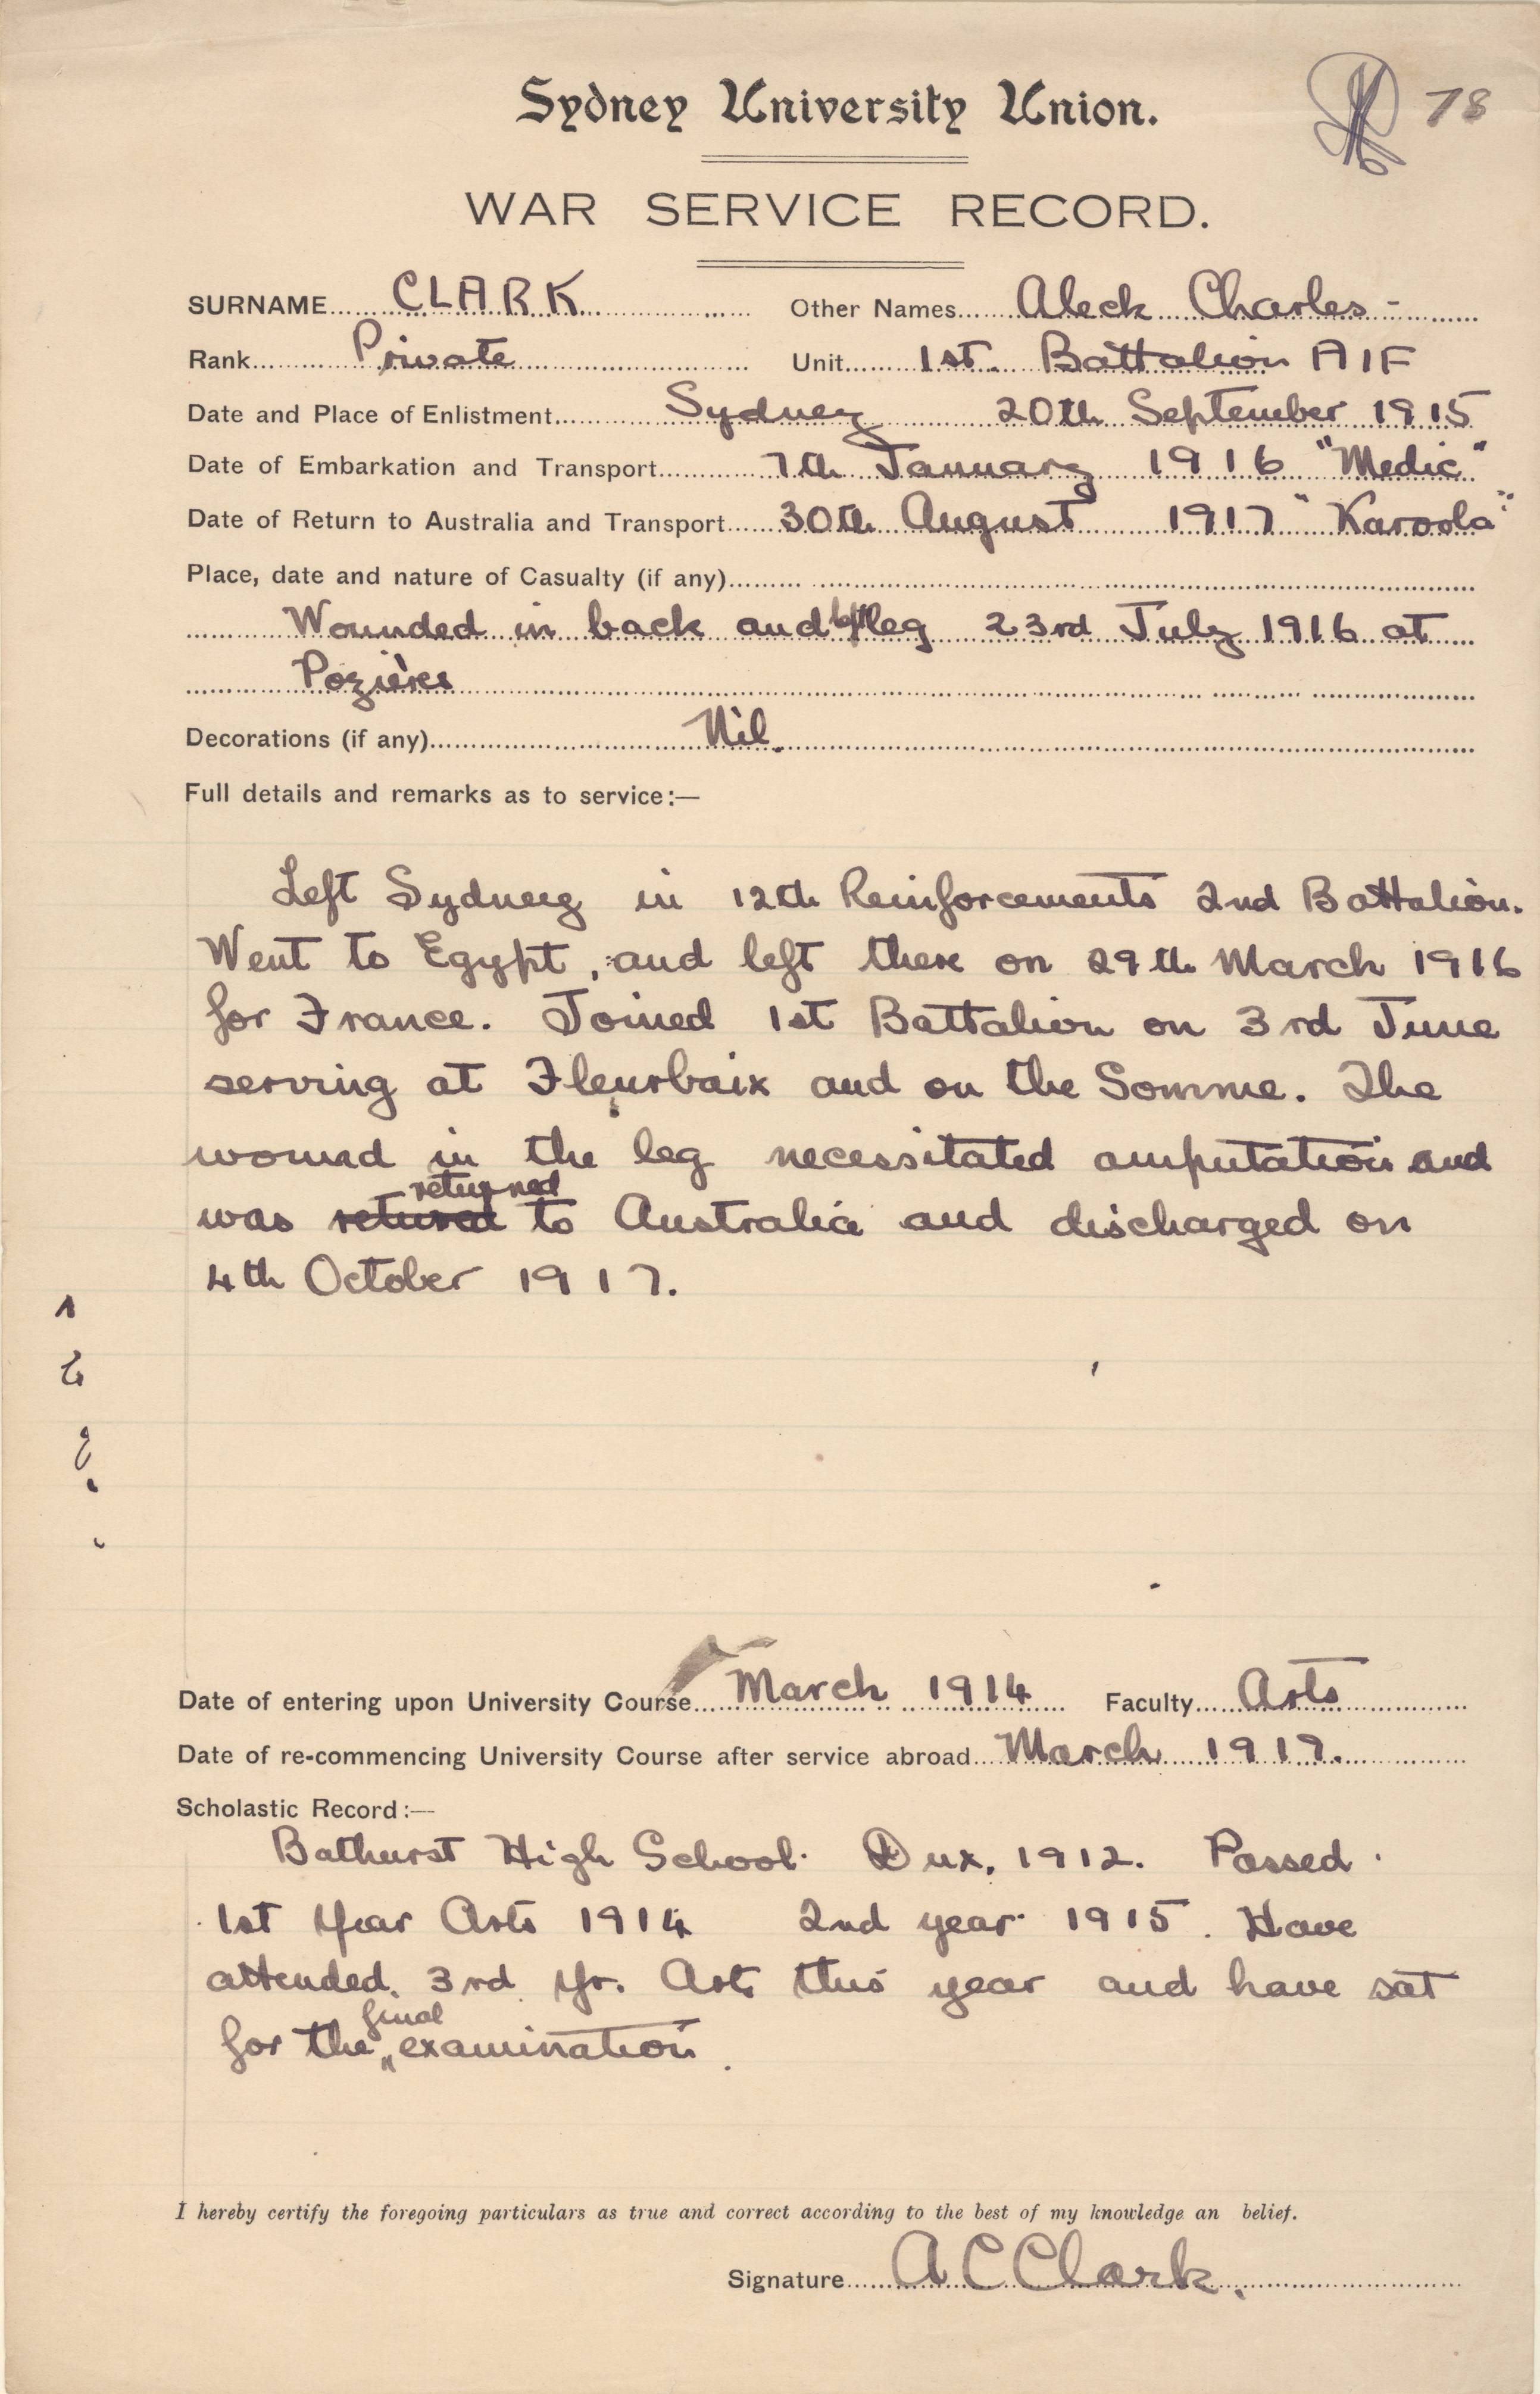 Sydney University Union.
78
WAR SERVICE RECORD.
SURNAME CLARK Other Names Aleck Charles -
Rank Private Unit 1st. Battalion AIF
Date and Place of Enlistment Sydney 20th September 1915
Date of Embarkation and Transport 7th January 1916 "Medic"
Date of Return to Australia and Transport 30th August 1917 "Karoola"
Place, date and nature of Casualty (if any)
Wounded in back and left leg 23rd July 1916 at
Pozières
Decorations (if any) Nil.
Full details and remarks as to service:—
Left Sydney in 12th Reinforcements 2nd Battalion.
Went to Egypt, and left there on 29th March 1916
for France. Joined 1st Battalion on 3rd June
serving at Fleurbaix and on the Somme. The
wound in the leg necessitated amputation and
returned
was retured to Australia and discharged on
4th October 1917.
Date of entering upon University Course March 1914 Faculty Arts
Date of re-commencing University Course after service abroad March 1917.
Scholastic Record:—
Bathurst High School. Dux. 1912. Passed
1st Year Arts 1914 2nd year 1915. Have
attended. 3rd Yr. Arts this year and have sat
final
for the examination.
I hereby certify the foregoing particulars as true and correct according to the best of my knowledge an belief.
Signature A C Clark.